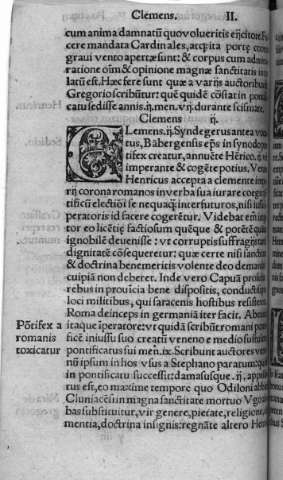 Clemens. II.
cum anima damnatũ quo volueritis eijcitote. F
cere mandata Cardinales, atq; ita portę eccle
graui vento apertæ sunt: & corpus cum admi
ratione oĩm & opinione magnæ sanctitatis in
latũ est. Hæc fere sunt quæ a varijs auctoribus
Gregorio scribũtur: que quidẽ cõstat in ponti
catu sedisse annis. ij. men. vij. durante scismate.
Clemens ij.
CLemens. ij. Syndegerus antea voca
tus, Bãbergensis ep̃s in synodo põ
tifex creatur, annuẽte Hẽrico, ij. vel
imperante & cogẽte potius. Vera
Henricus accepta a clemente impe
rij corona romanos in verba sua iurare coegit
tificũ electioĩ se nequaq̃ interfuturos, nisi iussu
peratoris id facere cogerẽtur. Videbat em̃ im
tor eo licẽtię factiosum quẽque & potẽtẽ quã
ignobilẽ deuenisse: vt corruptis suffragijs tantã
dignitatẽ cõsequeretur: quæ certe nisi sanctitate
& doctrina benemeritis volente deo demandari
cuipiã non deberet. Inde vero Capuã profectus
rebus in prouĩcia bene dispositis, conductisque
loci militibus, qui saracenis hostibus resisterent
Roma deinceps in germaniã iter facit. Abeunte
Põtifex a
romanis
toxicatur
itaque ĩperatore: vt quidã scribũt romani ponti
ficẽ iniussu suo creatũ veneno e medio sustulere
pontificatus sui men. ix. Scribunt auctores vene
nũ ipsum in hos vsus a Stephano paratum: qui
in pontificatu successit: damasusque. ij. appella
tus est, eo maxime tempore quo Odiloni abbati
Cluniacẽsi in magna sanctitate mortuo Vgo ab
bas substituitur, vir genere, pietate, religione,
mentia, doctrina insignis: regnãte altero Hen